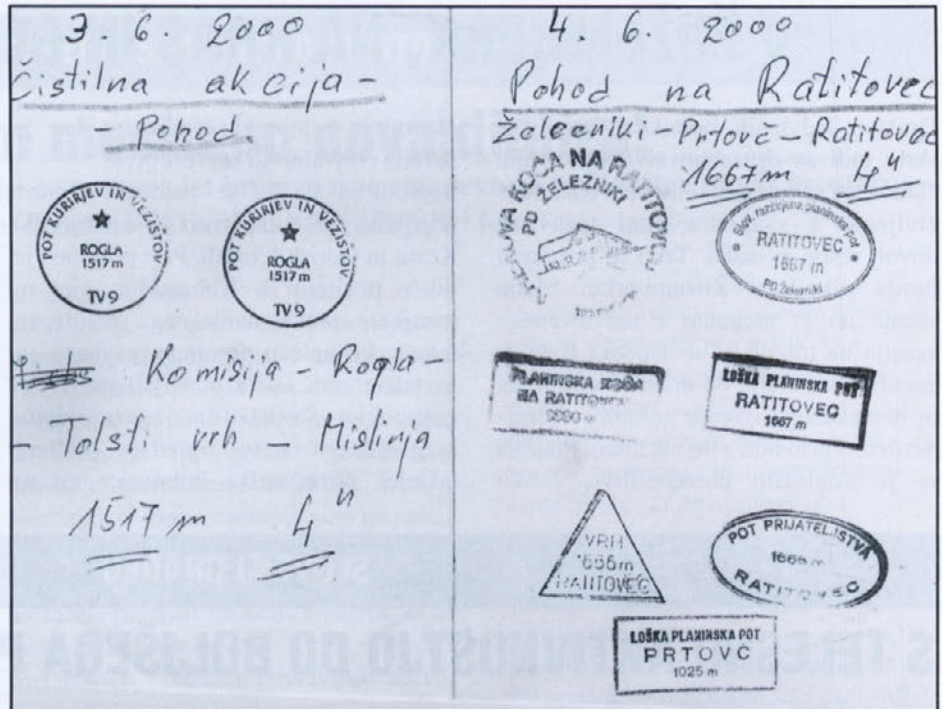 3. 6. 2000
Čistilna akcija -
Pohod -
POT KURIRJEV IN VEZISTOV
ROGLA
1517 m
TV9
POT KURIRJEV IN VEZISTOV
ROGLA
1517 m
TV9
Komisija - Rogla -
- Volski vrh - Mislinja
1517 m 4 h
4. 6. 2000
Pohod na Ratitovec
Železniki - Prtovč - Ratitovec
1667 m 4 h
KOČA NA RATITOVCU
PD ŽELEZNIKI
Slov. razširjena planinska pot
RATITOVEC
1667 m
PLANINSKA KOČA
NA RATITOVCU
LOŠKA PLANINSKA POT
RATITOVEC
1667 m
VRH
1666m
RATITOVEC
POT PRIJATELJSTVA
1666 m
RATITOVEC
LOŠKA PLANINSKA POT
PRTOVČ
1025 m